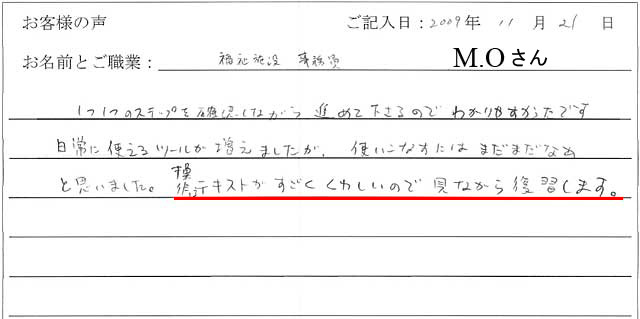 お客様の声 ご記入日：2009年 11月 21日
お名前とご職業： 福祉施設 事務員 M.Oさん
1つ1つのステップを確認しながら 進めて下さるので わかりやすかったです
日常に使えるツールが増えましたが、使いこなすにはまだまだだなぁ
と思いました。 テキストがすごくくわしいので 見ながら復習します。